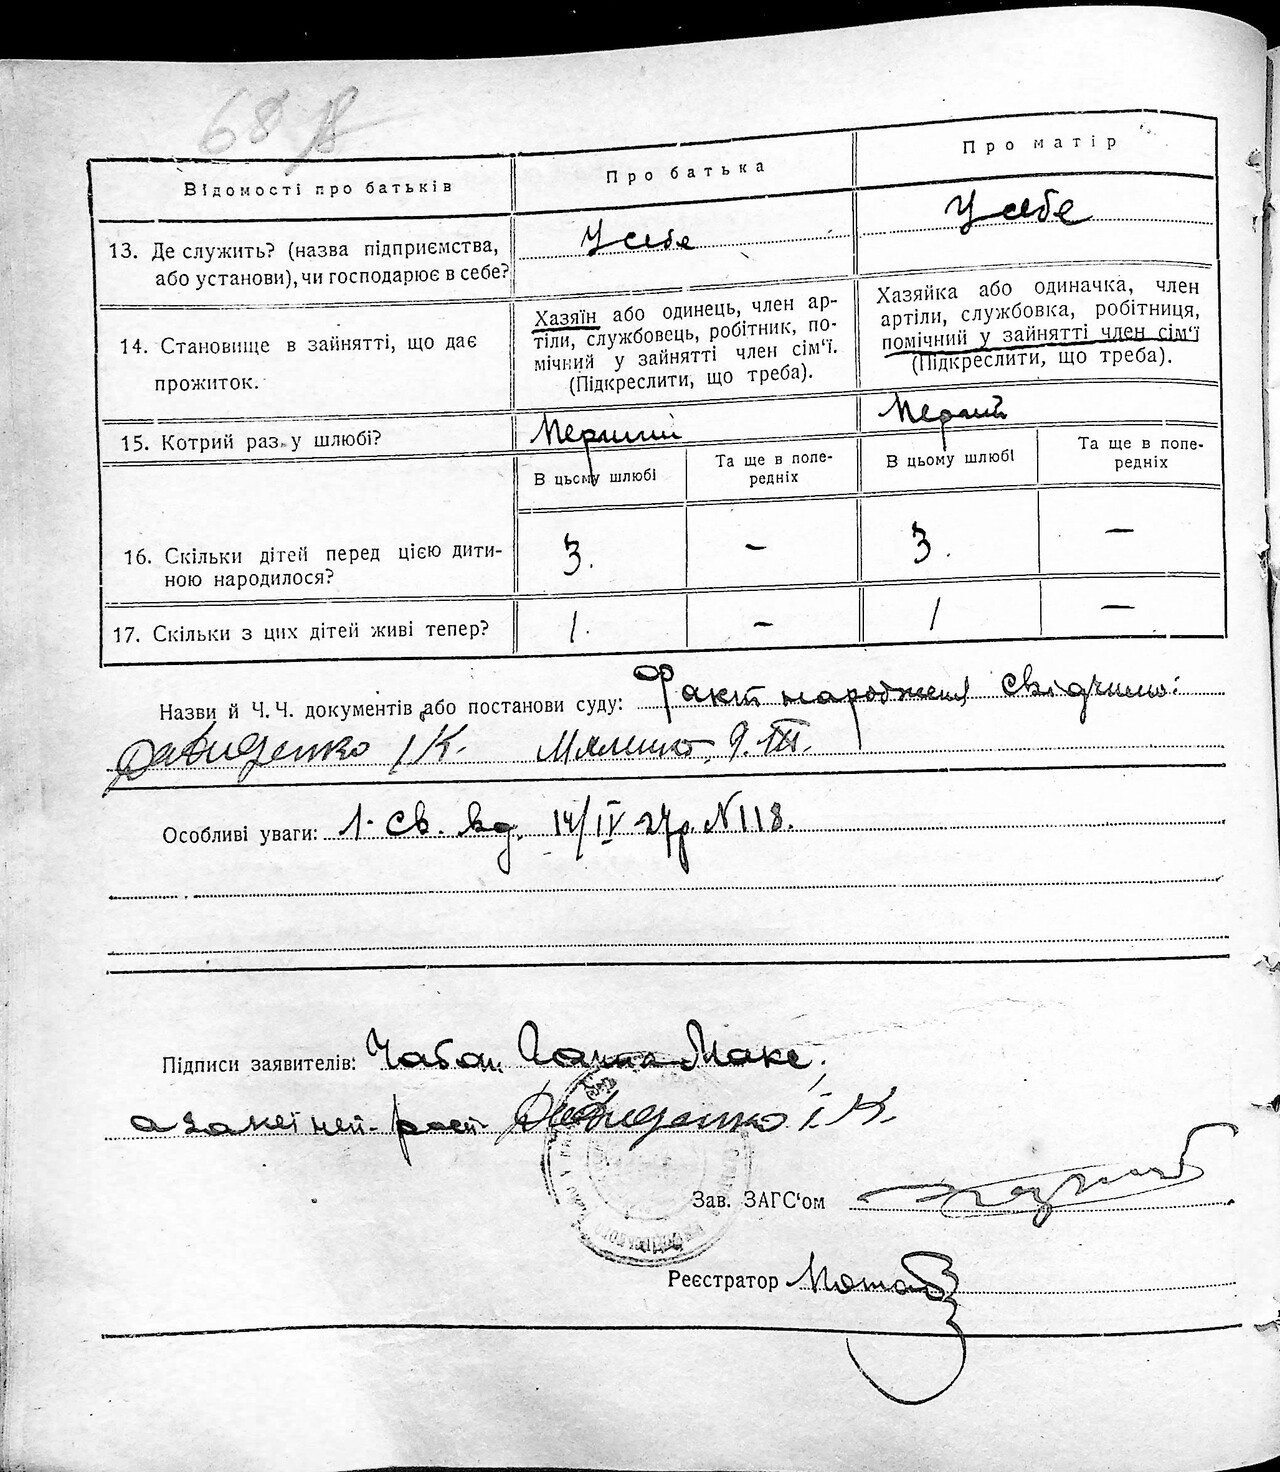 68
Відомості про батьків
Про батька
Про матір
13. Де служить? (назва підприємства,
або установи), чи господарює в себе?
У себе
У себе
14. Становище в зайнятті, що дає
прожиток.
Хазяїн або одинець, член ар-
тіли, службовець, робітник, по-
мічний у зайнятті член сім'ї.
(Підкреслити, що треба).
Хазяйка або одиначка, член
артіли, службовка, робітниця,
помічний у зайнятті член сім'ї
(Підкреслити, що треба).
15. Котрий раз у шлюбі?
Перший
Перший
В цьому шлюбі
Та ще в попе-
редніх
В цьому шлюбі
Та ще в попе-
редніх
16. Скільки дітей перед цією дити-
ною народилося?
3. – 3. –
17. Скільки з цих дітей живі тепер?
1. – 1 –
Назви й Ч. Ч. документів або постанови суду: Факт народження свідчимо:
Давиденко І К.
Особливі уваги: 1. Св. вд. 14/IV 27р. N 118.
Підписи заявителів: Чабан Ганна Макс,
а за неї неп- росп Давиденко І. К.
Зав. ЗАГС'ом
Реєстратор